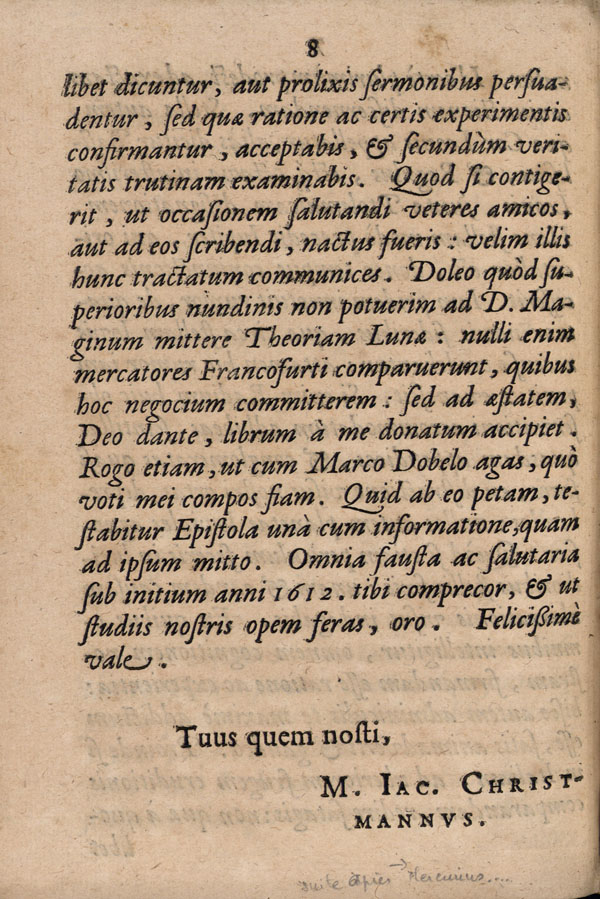 8
libet dicuntur, aut prolixis ſermonibus perſua-
dentur, ſed quæ ratione ac certis experimentis
confirmantur, acceptabis, & ſecundùm veri-
tatis trutinam examinabis. Quod ſi contige-
rit, ut occaſionem ſalutandi veteres amicos,
aut ad eos ſcribendi, nactus fueris: velim illis
hunc tractatum communices. Doleo quòd ſu-
perioribus nundinis non potuerim ad D. Ma-
ginum mittere Theoriam Lunæ: nulli enim
mercatores Francofurti comparuerunt, quibus
hoc negocium committerem: ſed ad æſtatem,
Deo dante, librum à me donatum accipiet.
Rogo etiam, ut cum Marco Dobelo agas, quò
voti mei compos fiam. Quid ab eo petam, te-
ſtabitur Epiſtola unà cum informatione, quam
ad ipſum mitto. Omnia fauſta ac ſalutaria
ſub initium anni 1612. tibi comprecor, & ut
ſtudiis noſtris opem feras, oro. Feliciſſimè
vale.
Tuus quem noſti,
M. IAC. CHRIST-
MANNVS.